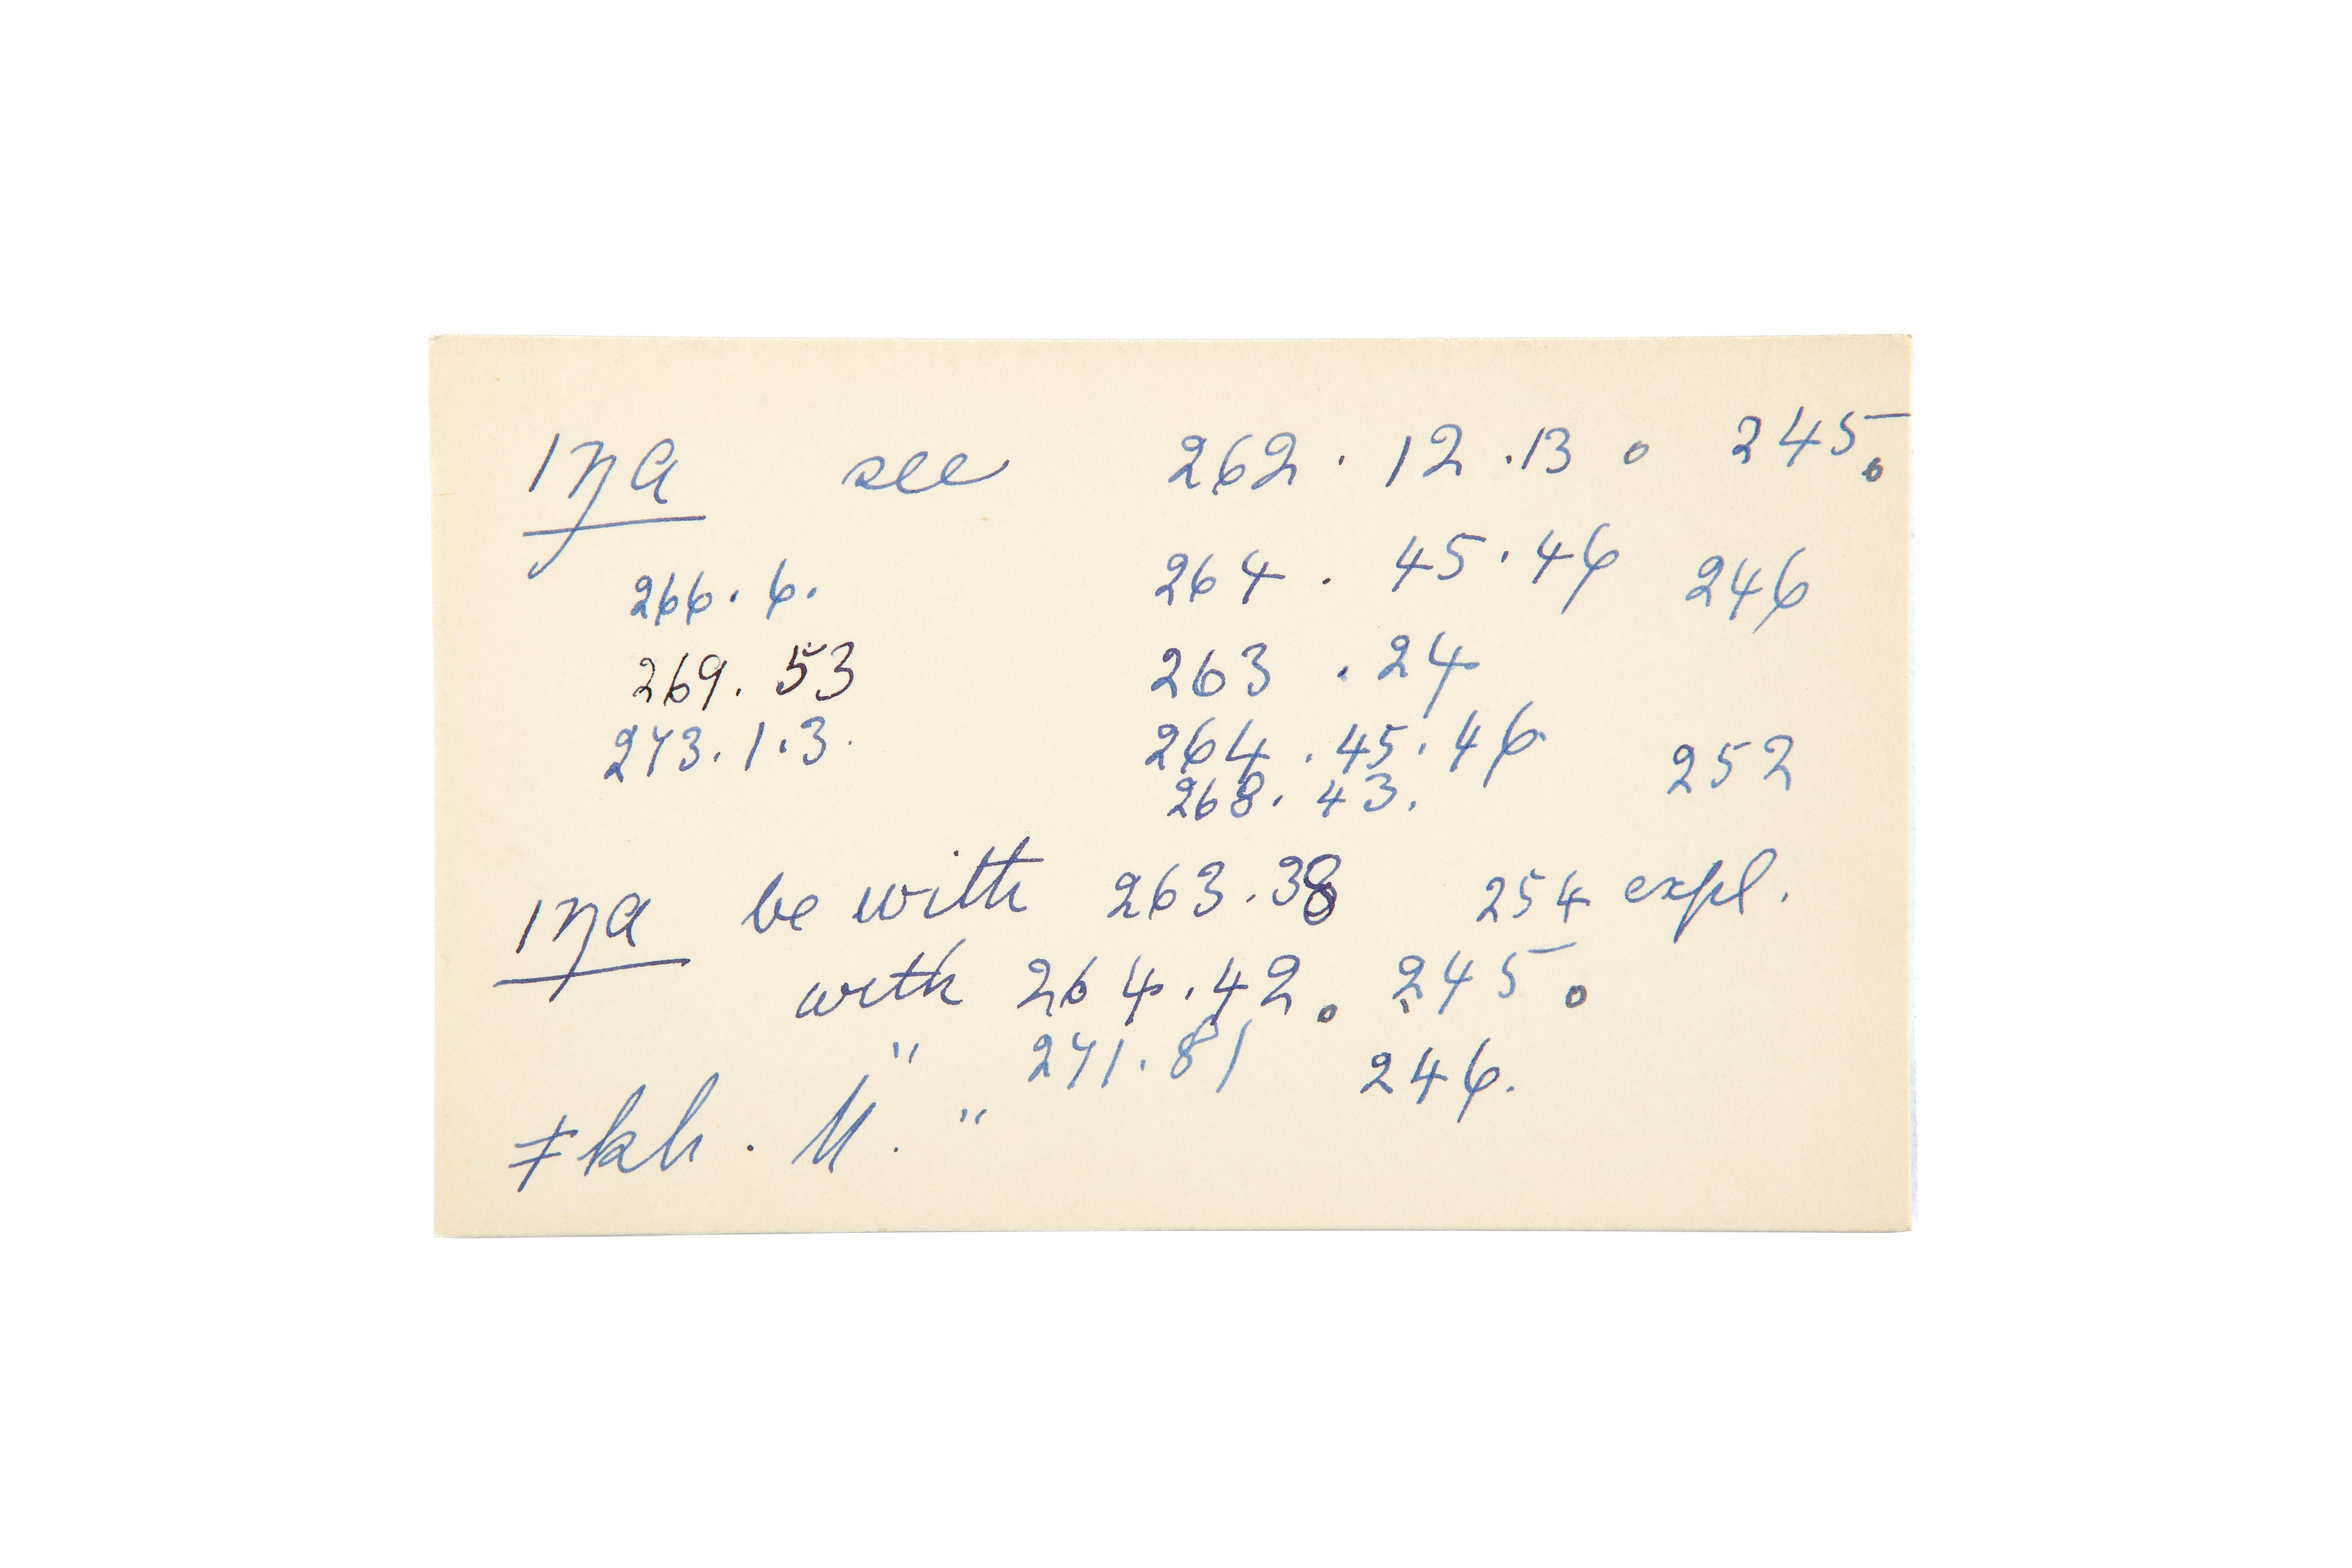 /ŋa see 262 · 12 · 13 o 245 o
266 · 6 · 264 · 45 · 46 246
269 . 53 263 · 24
273 . 1 · 3 · 264 · 45 · 46 252
268 · 43 .
/ŋa be with 263 · 38 254 expl .
with 264 · 42 o 245 o
" 271 · 81 246 .
≠kh . M . "